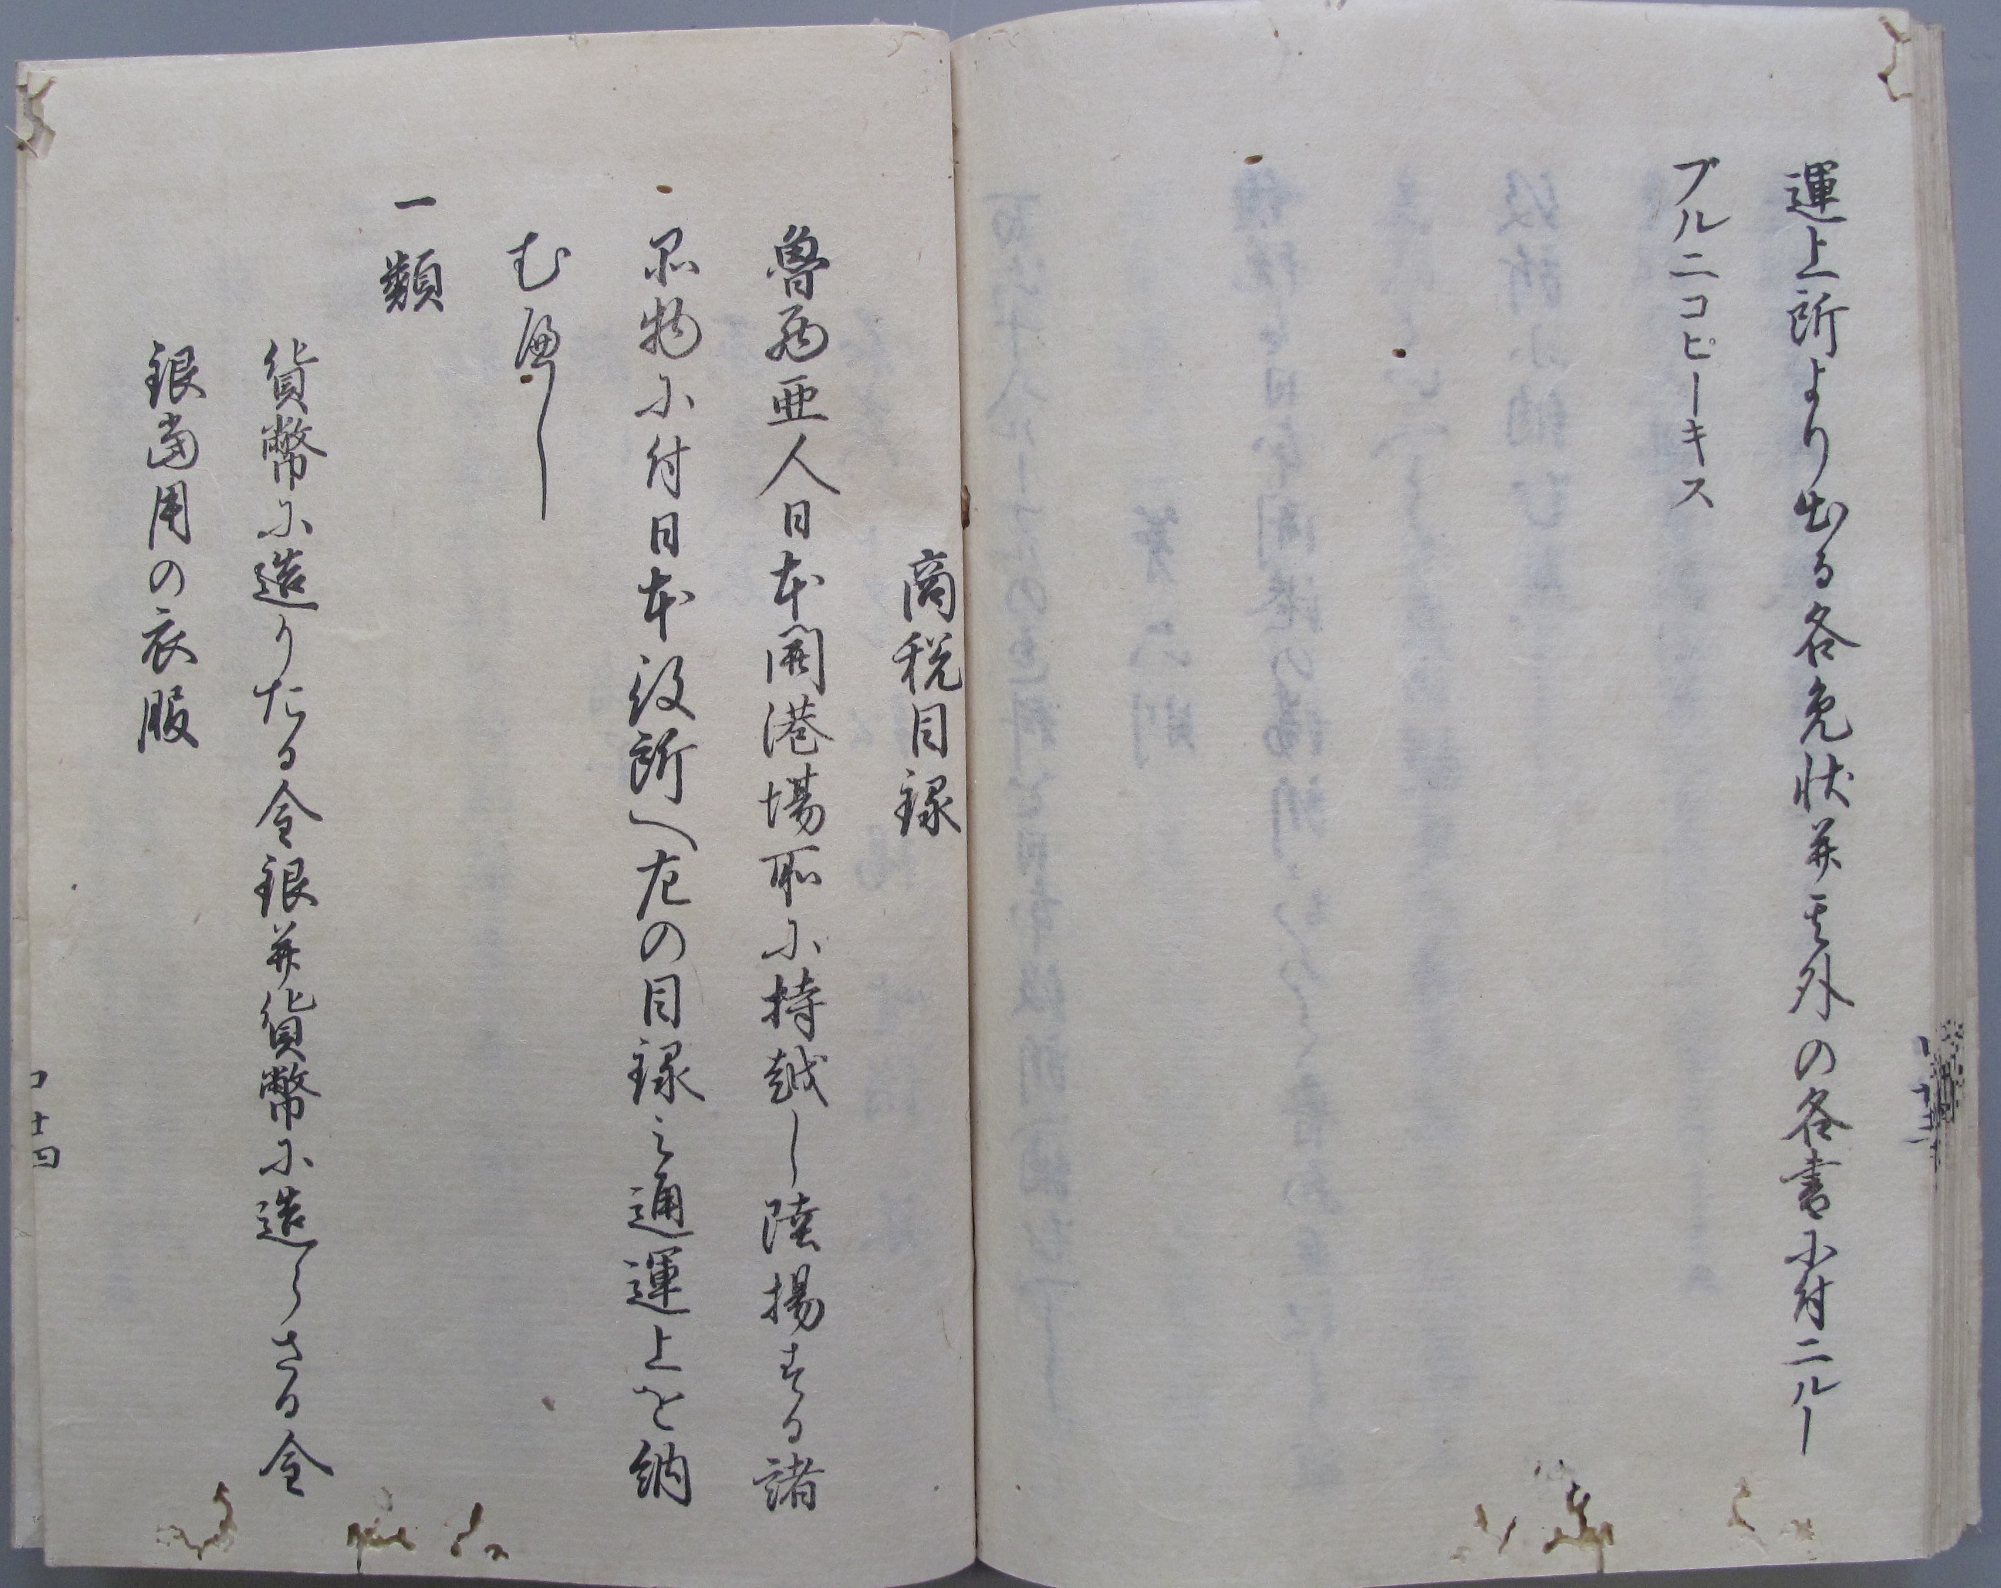 運上所より出る各免状并其外の各書に付二ルー
ブルニコピーキス
商税目録
魯西亜人日本開港場所に持越し陸揚する諸
品物に付日本役所へ左の目録之通運上を納
むへし
一類
貨幣に造りたる金銀并貨幣に造らさる金
銀当用の衣服
十四